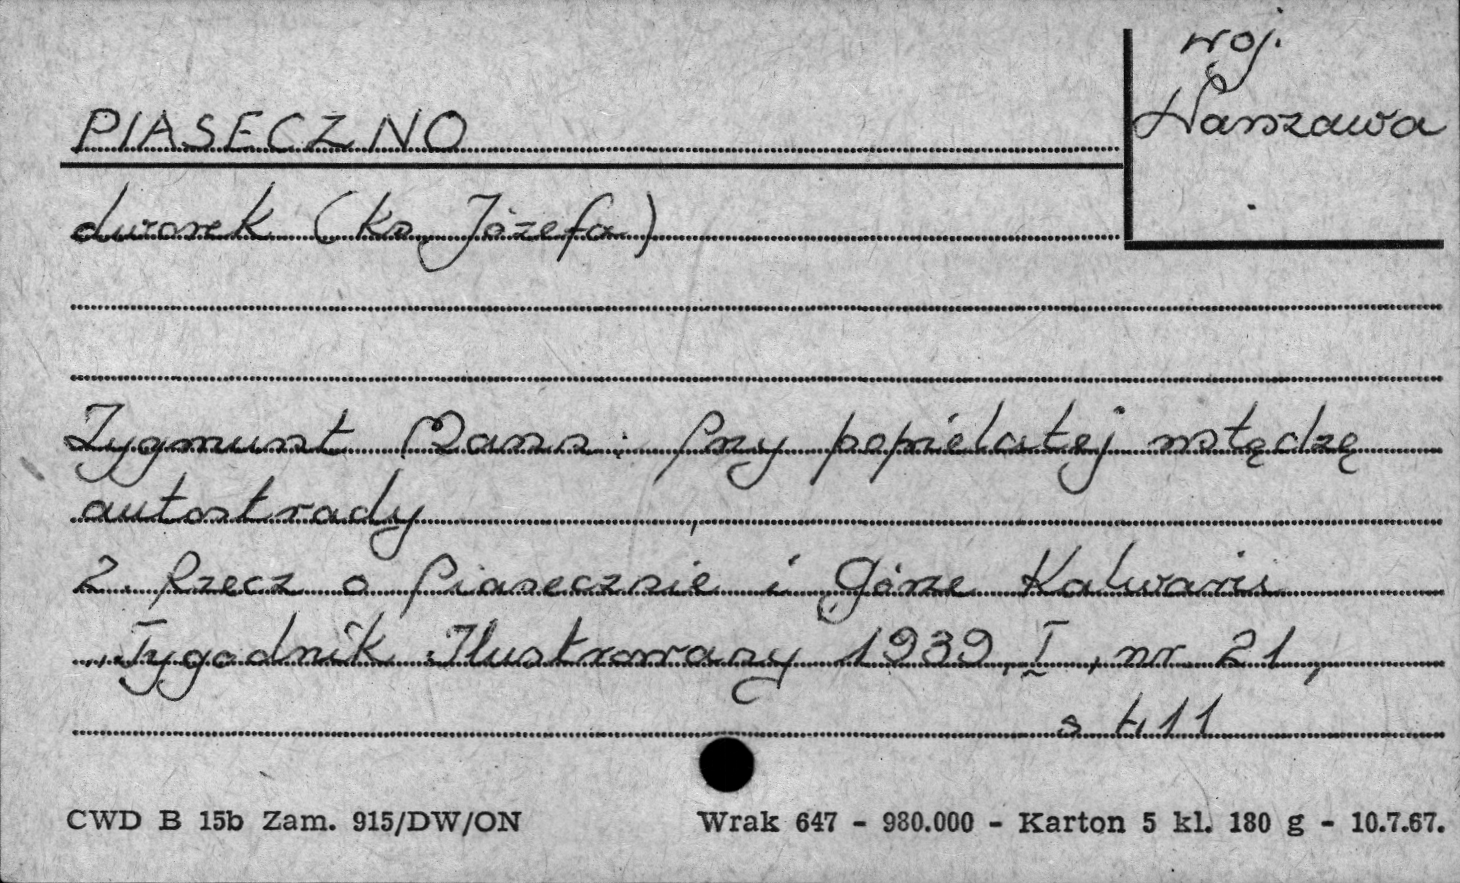 woj.
Warszawa
PIASECZNO
dworek (ks. Józefa)
Zygmunt : Przy popielatej wstędze
autostrady
2. Rzecz o Piasecznie i Górze Kalwarii
"Tygodnik Ilustrowany 1939, I, nr 21,
s 411
CWD B 15b Zam. 915/DW/ON
Wrak 647 - 980.000 - Karton 5 kl. 180 g - 10.7.67.